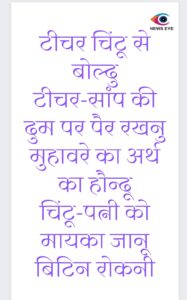 NEWS EYE
टीचर चिंटू से
बोल्दु
टीचर-सांप की
दुम पर पैर रखनु
मुहावरे का अर्थ
का हौन्दू
चिंटू-पत्नी को
मायका जानू
बिटिन रोकनी